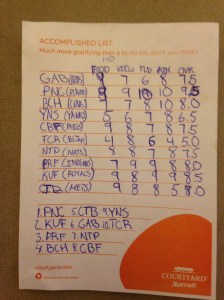 ACCOMPLISHED LIST.
Much more gratifying than a to-do list, don't you think?
FOOD VIEW FLD ATM OVR
GAB 9 7 6 8 7.5
PNC 8 9 10 9 9.5
BCH 9 7 8 10 8.0
YNS 5 6 7 8 6.5
CBF 9 8 7 8 7.5
TCR 4 8 6 4 5.0
NTP (NATS) 8 8 7 8 7.5
PRF 7 9 9 8 8.0
KUF (ROYALS) 9 8 9 9 8.5
CTB (METS) 9 8 8 5 8.0
1. PNC 5. CTB 9. YNS
2. KUF 6. GAB 10. TCR
3. PRF 7. NTP
4. BCH 8. CBF
courtyard.com
COURTYARD
Marriott